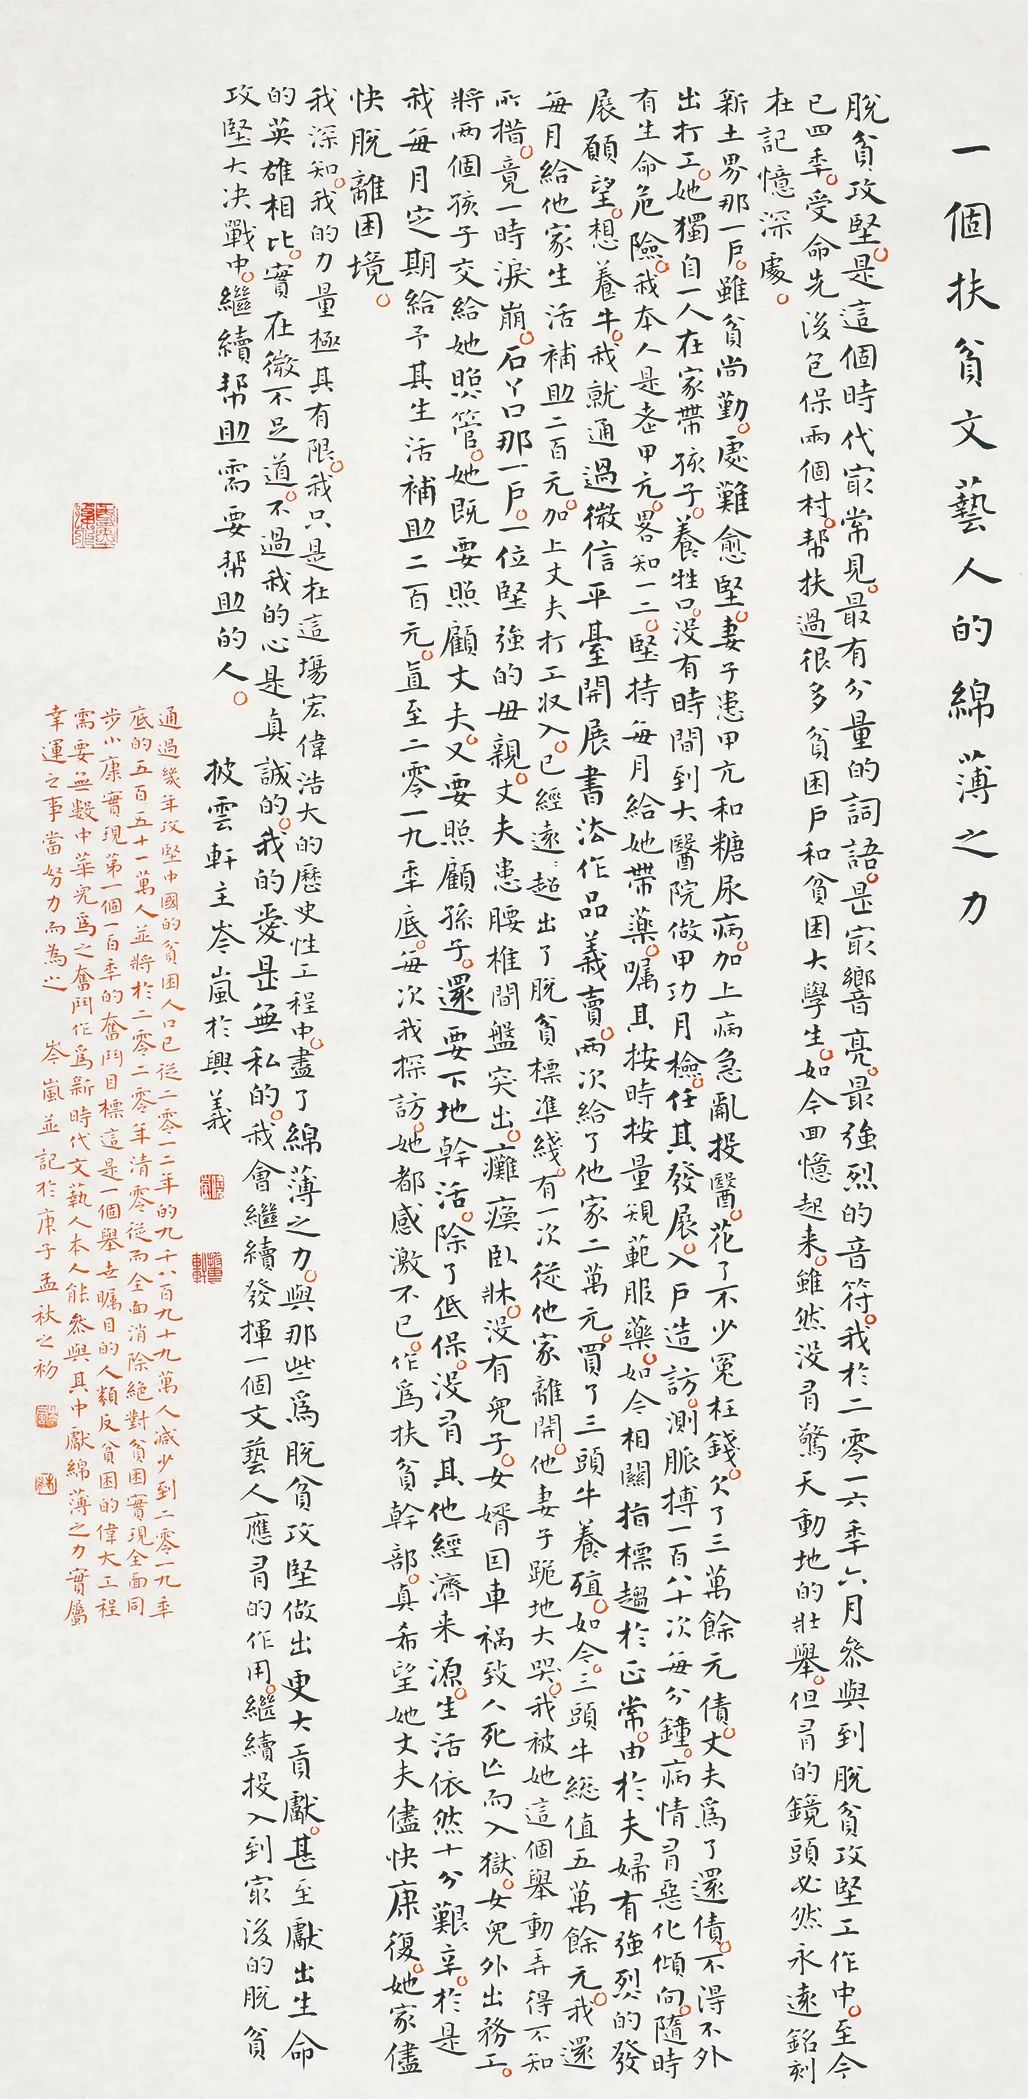 一個扶貧文藝人的綿薄之力
脫貧攻堅。是這個時代最常見。最有分量的詞語。是最響亮。最強烈的音符。我於二零一六年六月參與到脫貧攻堅工作中。至今
已四年。受命先後包保兩個村。幫扶過很多貧困戶和貧困大學生。如今回憶起來。雖然沒有驚天動地的壯舉。但有的鏡頭必然永遠銘刻
在記憶深處。
新土界那一戶。雖貧尚勤。處難愈堅。妻子患甲亢和糖尿病。加上病急亂投醫。花了不少冤枉錢。欠了三萬餘元債。丈夫為了還債。不得不外
出打工。她獨自一人在家帶孩子。養牲口。沒有時間到大醫院做甲功月檢。任其發展。入戶造訪。測脈搏一百八十次每分鐘。病情有惡化傾向。隨時
有生命危險。我本人是老甲亢。畧知一二。堅持每月給她帶藥。囑其按時按量規範服藥。如今相關指標趨於正常。由於夫婦有強烈的發
展願望。想養牛。我就通過微信平臺開展書法作品義賣。兩次給了他家二萬元。買了三頭牛養殖。如今。三頭牛總值五萬餘元。我還
每月給他家生活補助二百元。加上丈夫打工收入。已經遠遠超出了脫貧標準綫。有一次從他家離開。他妻子跪地大哭。我被她這個舉動弄得不知
所措。竟一時淚崩。石丫口那一戶。一位堅強的母親。丈夫患腰椎間盤突出。癱瘓臥牀。沒有兒子。女婿因車禍致人死亡而入獄。女兒外出務工。
將兩個孩子交給她照管。她既要照顧丈夫。又要照顧孫子。還要下地幹活。除了低保。沒有其他經濟来源。生活依然十分艱辛。於是
我每月定期給予其生活補助二百元。直至二零一九年底。每次我探訪。她都感激不已。作為扶貧幹部。真希望她丈夫儘快康復。她家儘
快脫離困境。
我深知。我的力量極其有限。我只是在這場宏偉浩大的歷史性工程中。盡了綿薄之力。與那些為脫貧攻堅做出更大貢獻。甚至獻出生命
的英雄相比。實在微不足道。不過我的心是真誠的。我的愛是無私的。我會繼續發揮一個文藝人應有的作用。繼續投入到最後的脫貧
攻堅大決戰中。繼續幫助需要幫助的人。
披雲軒主岑嵐於興義
通過幾年攻堅中國的貧困人口已從二零一二年的九千八百九十九萬人減少到二零一九年
底的五百五十一萬人並將於二零二零年清零從而全面消除絕對貧困實現全面同
步小康實現第一個一百年的奮鬥目標這是一個舉世矚目的人類反貧困的偉大工程
需要無數中華兒為之奮鬥作為新時代文藝人本人能參與其中獻綿薄之力實屬
幸運之事當努力而為之 岑嵐並記於庚子孟秋之初